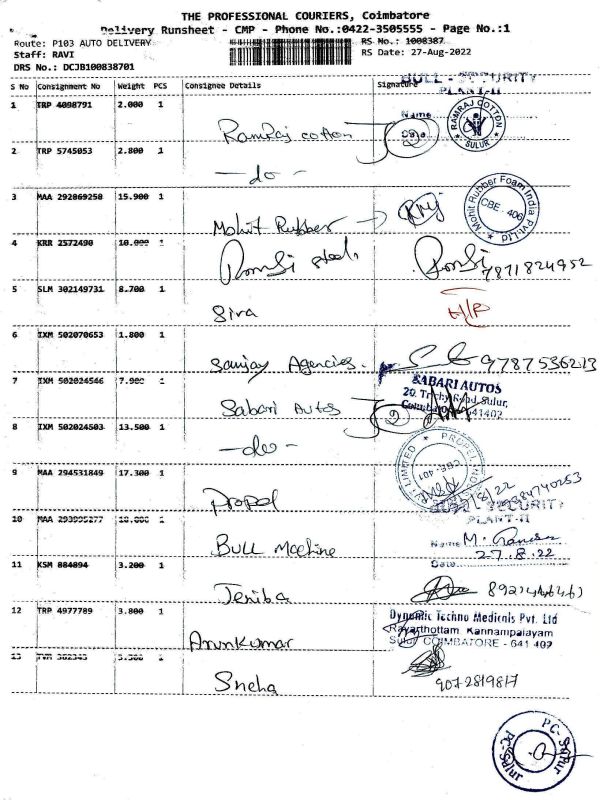 THE PROFESSIONAL COURIERS, Coimbatore
Delivery Runsheet - CMP - Phone No.:0422-3505555 - Page No.:1
Route: P103 AUTO DELIVERY
RS No.: 1008387
Staff: RAVI
RS Date: 27-Aug-2022
DRS No.: DCJB100838701
S No Consignment No Weight PCS Consignee Details Signature
BULL - SECURITY
PLANT-II
1 TRP 4098791 2.000 1
Name
Date
RAMRAJ COTTON
SULUR
Ramraj cotton 2
2 TRP 5745053 2.800 1
- do -
3 MAA 292869258 15.900 1
Mohit Rubber
Mohit Rubber Foam India Pvt. Ltd
CBE - 406
4 KRR 2572490 10.000 1
Ramsi steels
Ramsi 7871824952
5 SLM 302149731 8.700 1
Siva
6 IXM 502070653 1.800 1
Sanjay Agencies.
7 IXM 502024546 7.900 1
SABARI AUTOS
20. Trichy Road, Sulur,
Sabari Autos 2
8 IXM 502024503 13.500 1
- do -
CBE - 401
9 MAA 294531849 17.300 1
Propel
BULL - SECURITY
PLANT-II
10 MAA 293995277 10.000 1
Name M.
Bull Machine
27.8.22
Date
11 KSM 884894 3.200 1
Jeniba
12 TRP 4977789 3.800 1
Dynamic Techno Medicals Pvt. Ltd
Ravathottam, Kannampalayam
Sulur COIMBATORE - 641 402
Arunkumar
13 TVR 302343 5.300 1
Sneha
9072819817
PC-Sulur
PC-Sulur